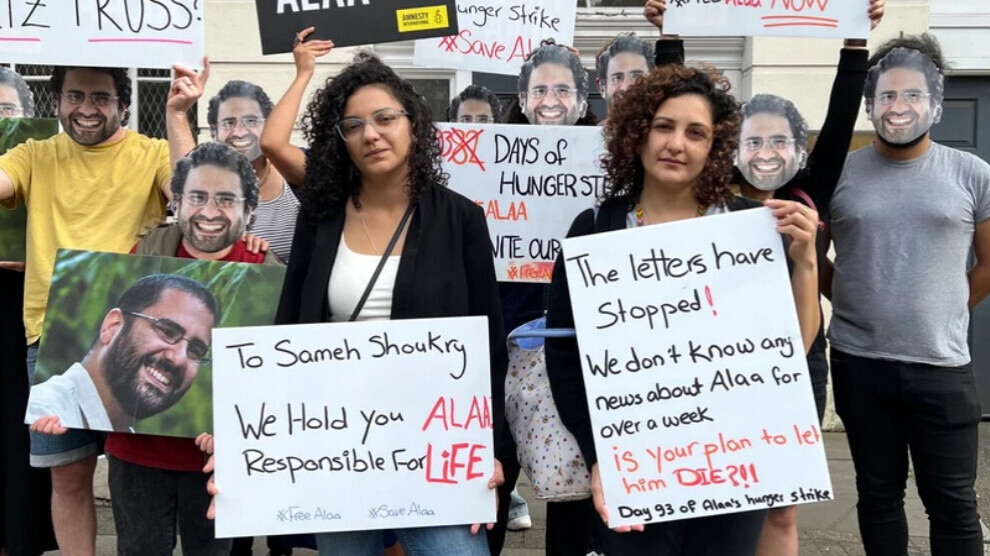 TRUSS?
ALAA
AMNESTY
INTERNATIONAL
Hunger Strike
#Save Alaa
Alaa NOW
DAYS of
HUNGER
ALAA
OUR
To Sameh Shoukry
We Hold you ALAA
Responsible For LiFE
#FreeAlaa #SaveAlaa
The letters have
Stopped!
We don't know any
news about Alaa for
over a week
is your plan to let
him DIE?!!
Day 93 of Alaa's hunger strike